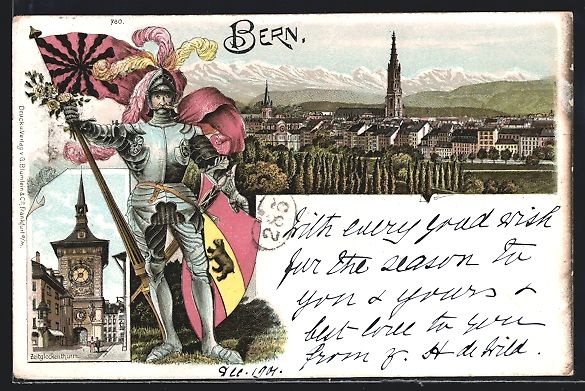 760.
BERN.
Druck u. Verlag v. G. Blümlein & Co. Frankfurt a/m.
285
With every good wish
for the season to
you & yours &
best love to you
from H de Wild.
Zeitglockenthurm
Dec. 1901.